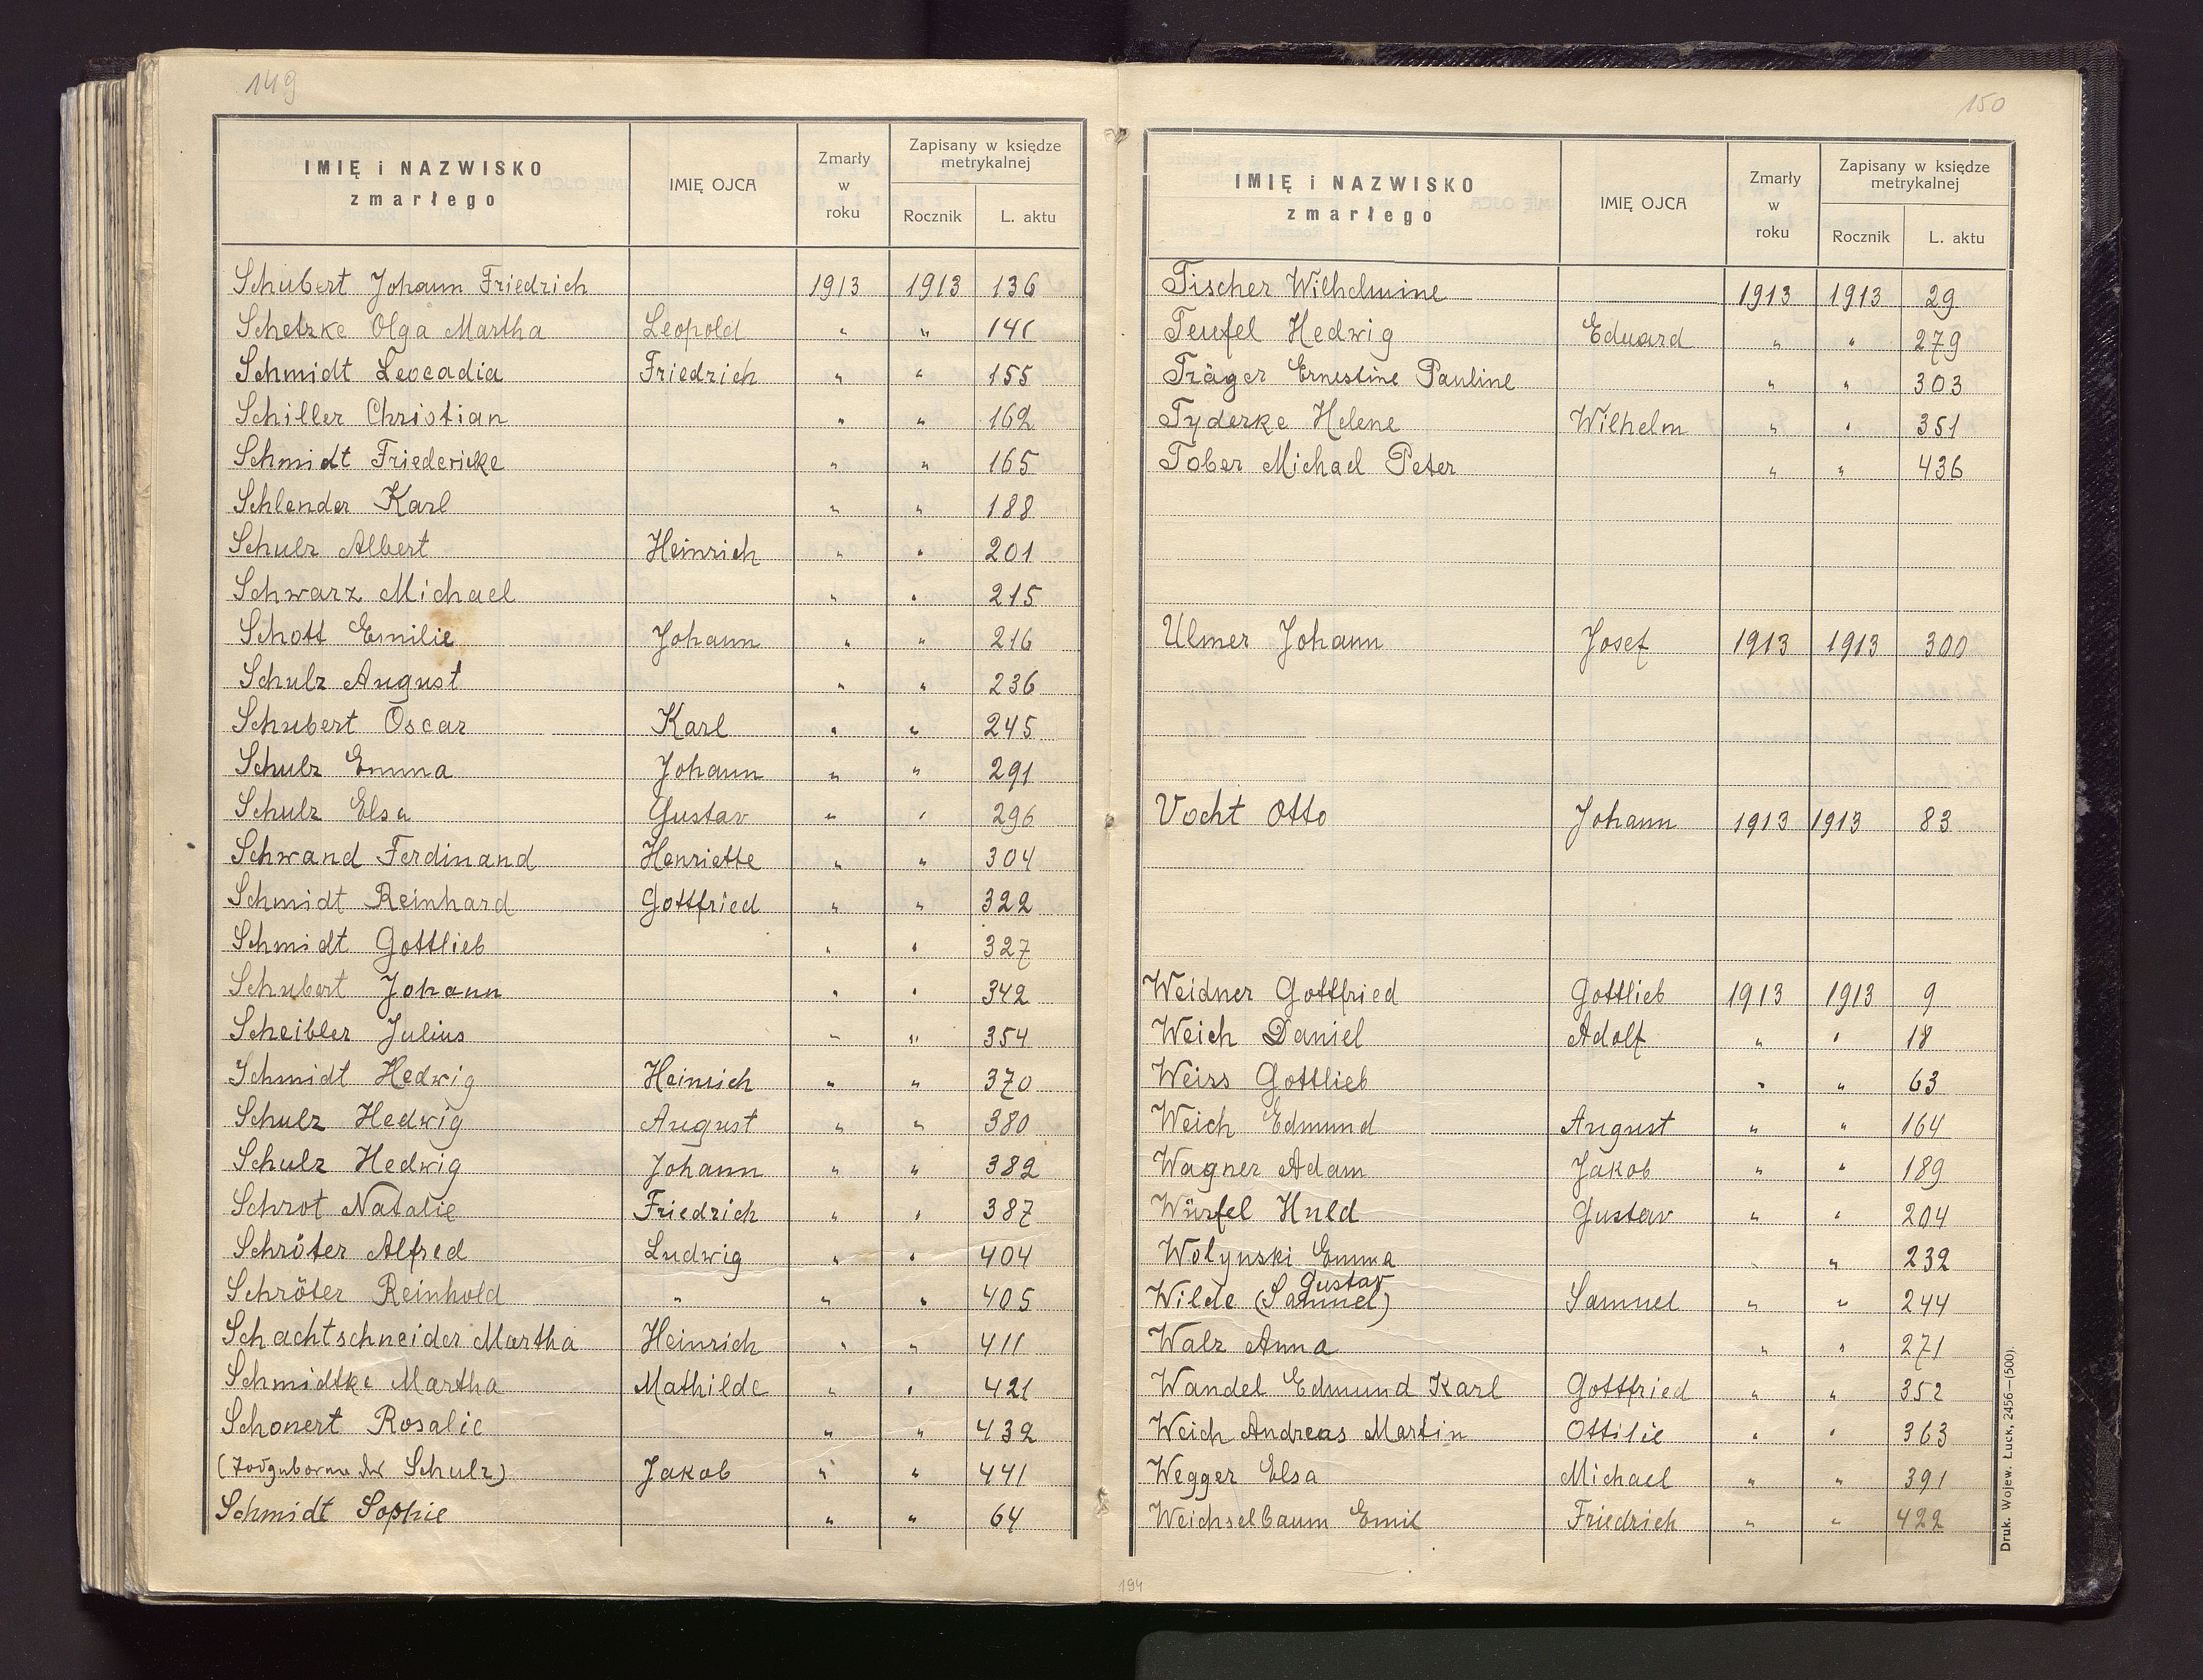 149
IMIĘ i NAZWISKO zmarłego | IMIĘ OJCA | Zmarły w roku | Zapisany w księdze metrykalnej
Rocznik | L. aktu
Schubert Johann Friedrich 1913 1913 136
Schetzke Olga Martha Leopold " " 141
Schmidt Leocadia Friedrich " " 155
Schiller Christian " " 162
Schmidt Friedericke " " 165
Schlender Karl " " 188
Schulz Albert Heinrich " " 201
Schwarz Michael " " 215
Schott Emilie Johann " " 216
Schulz August " " 236
Schubert Oscar Karl " " 245
Schulz Emma Johann " " 291
Schulz Elsa Gustav " " 296
Schwand Ferdinand Henriette " " 304
Schmidt Reinhard Gottfried " " 322
Schmidt Gottlieb " " 327
Schubert Johann " " 342
Scheibler Julius " " 354
Schmidt Hedwig Heinrich " " 370
Schulz Hedwig August " " 380
Schulz Hedwig Johann " " 382
Schrot Natalie Friedrich " " 387
Schröter Alfred Ludwig " " 404
Schröter Reinhold " " " 405
Schachtschneider Martha Heinrich " " 411
Schmidtke Martha Mathilde " " 421
Schonert Rosalie " " 432
Schulz) Jakob " " 441
Schmidt Sophie " " 64
150
IMIĘ i NAZWISKO zmarłego | IMIĘ OJCA | Zmarły w roku | Zapisany w księdze metrykalnej
Rocznik | L. aktu
Tischer Wilhelmine 1913 1913 29
Teufel Hedwig Eduard " " 279
Träger Ernestine Pauline " " 303
Tyderke Helene Wilhelm " " 351
Tober Michael Peter " " 436
Ulmer Johann Josef 1913 1913 300
Vocht Otto Johann 1913 1913 83
Weidner Gottfried Gottlieb 1913 1913 9
Weich Daniel Adolf " " 18
Weiss Gottlieb " " 63
Weich Edmund August " " 164
Wagner Adam Jakob " " 189
Würfel Huld Gustav " " 204
Wolynski Emma " " 232
Gustav
Wilde (Samuel) Samuel " " 244
Walz Anna " " 271
Wandel Edmund Karl Gottfried " " 352
Weich Andreas Martin Ottilie " " 363
Wegger Elsa Michael " " 391
Weichselbaum Emil Friedrich " " 422
Druk. Wojew. Łuck, 2456—(500).
194